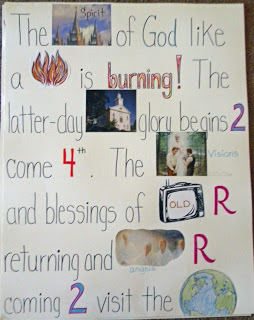 The Spirit of God like
a is burning! The
latter-day glory begins 2
come 4th. The Visions
and blessings of OLD R
returning and angels R
coming 2 visit the